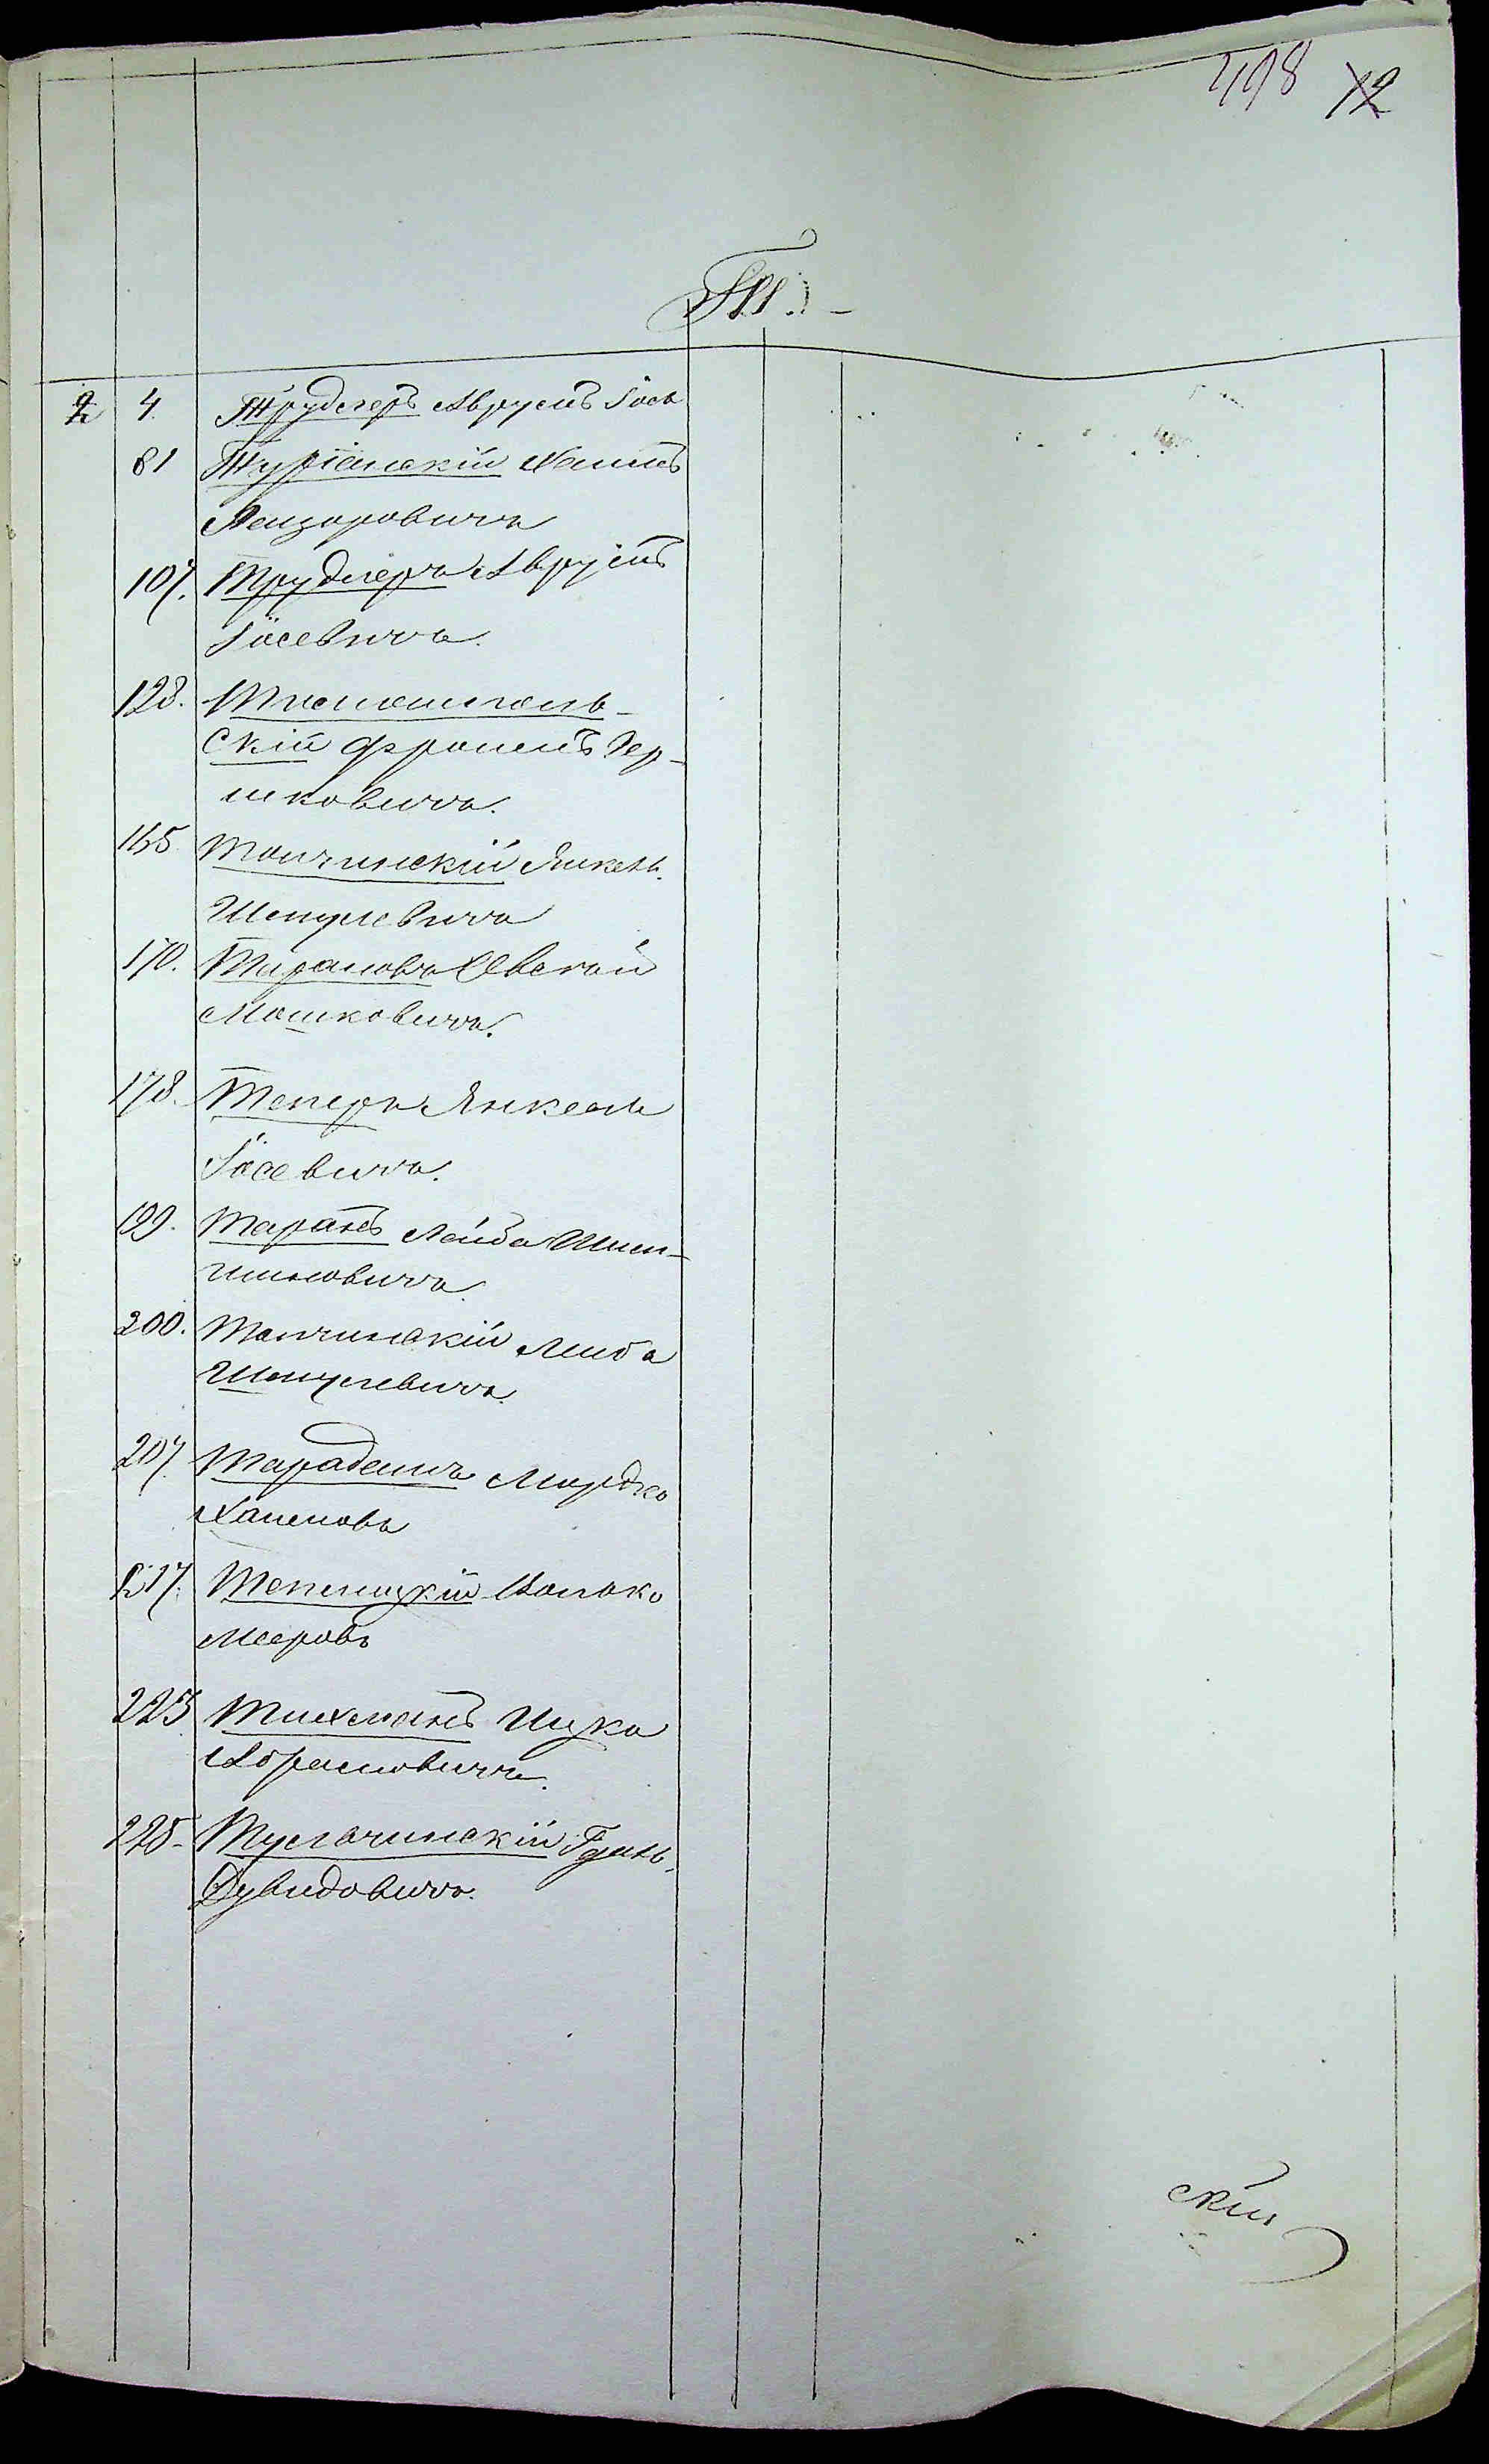 498 12
Т.
2 4. Трудлеръ Аврумъ Іось
81 Турianскій Хаимъ
Лейзоровичъ
107. Трудлеръ Аврумъ
Іосевичъ.
128. 
скій Фроимъ Гер-
шковичъ.
165 Толчинскій Янкель
Шмулевичъ
170. Тарановъ Овсей
Мошковичъ.
178. Теперъ Янкель
Іосевичъ.
199. Таранъ Лейба Шим-
шиновичъ
200. Толчинскій Лейба
Шмулевичъ.
207. Тарадашъ Мордко
Хаимовъ
217. Теплицкій Волько
Мееровъ
223 Тихманъ Ицко
Абрамовичъ.
225. Тульчинскій
Дувидовичъ.
скій